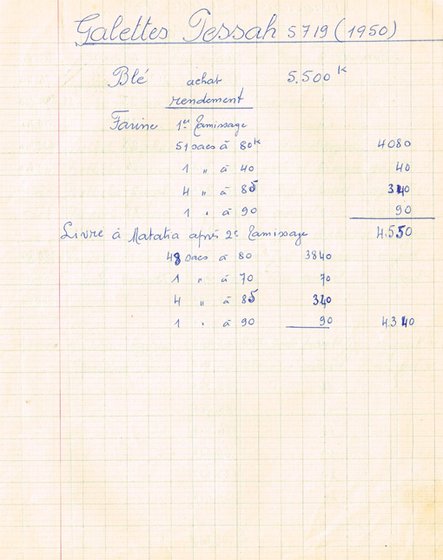 Galettes Pessah 5719 (1950)
Blé achat 5.500 K
rendement
Farine 1er Tamissage
51 sacs à 80K 4080
1 " à 40 40
4 " à 85 340
1 " à 90 90
4.550
Livré à Matatia après 2e Tamissage
48 sacs à 80 3840
1 " à 70 70
4 " à 85 340
1 " à 90 90 4.340